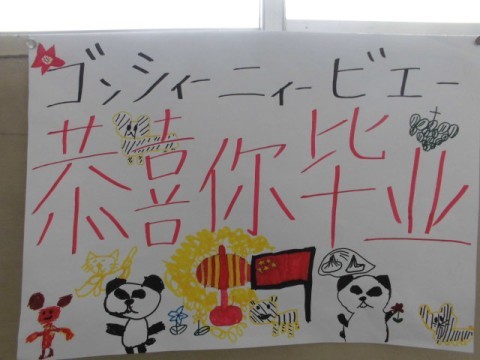 ゴンシィーニィービエー
恭喜你毕业